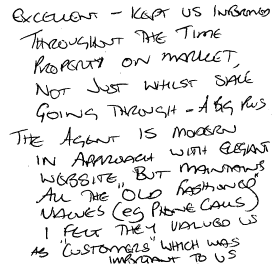 EXCELLENT - KEPT US INFORMED
THROUGHOUT THE TIME
PROPERTY ON MARKET,
NOT JUST WHILST SALE
GOING THROUGH - A BIG PLUS
THE AGENT IS MODERN
IN APPROACH WITH ELEGANT
WEBSITE, BUT MAINTAINS
ALL THE "OLD FASHIONED"
VALUES (EG PHONE CALLS)
I FELT THEY VALUED US
AS "CUSTOMERS" WHICH WAS
IMPORTANT TO US